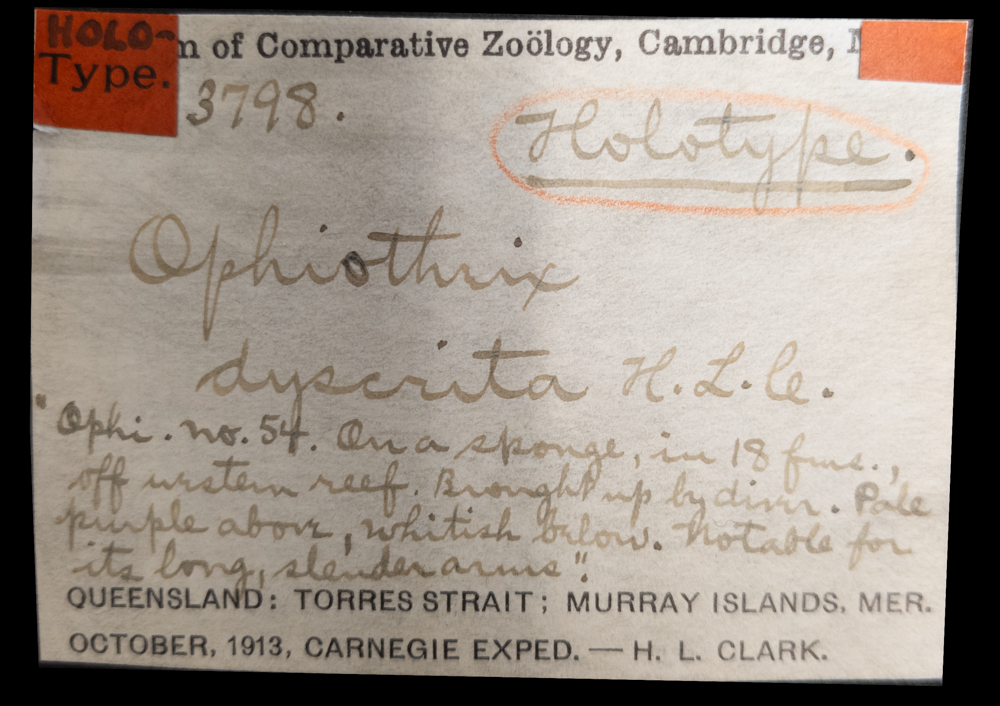 HOLO-
Type.
m of Comparative Zoölogy, Cambridge,
3798.
Holotype.
Ophiothrix
dyscrita H. L. C.
"Ophi. no. 54. On a sponge, in 18 fms.,
off western reef. Brought up by diver. Pale
purple above, whitish below. Notable for
its long, slender arms".
QUEENSLAND: TORRES STRAIT; MURRAY ISLANDS, MER.
OCTOBER, 1913, CARNEGIE EXPED. — H. L. CLARK.